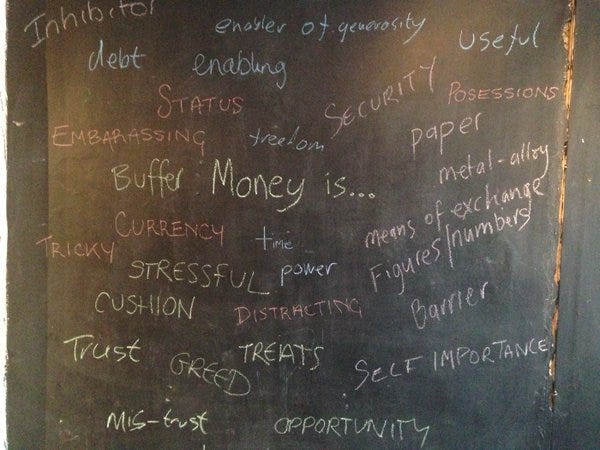 Inhibitor
enabler of generosity
useful
debt
enabling
STATUS
SECURITY
POSESSIONS
EMBARASSING
freedom
paper
metal-alloy
Buffer
Money is...
means of exchange
CURRENCY
time
Figures/numbers
TRICKY
STRESSFUL
power
CUSHION
DISTRACTING
Barrier
Trust
GREED
TREATS
SELF IMPORTANCE
Mis-trust
OPPORTUNITY